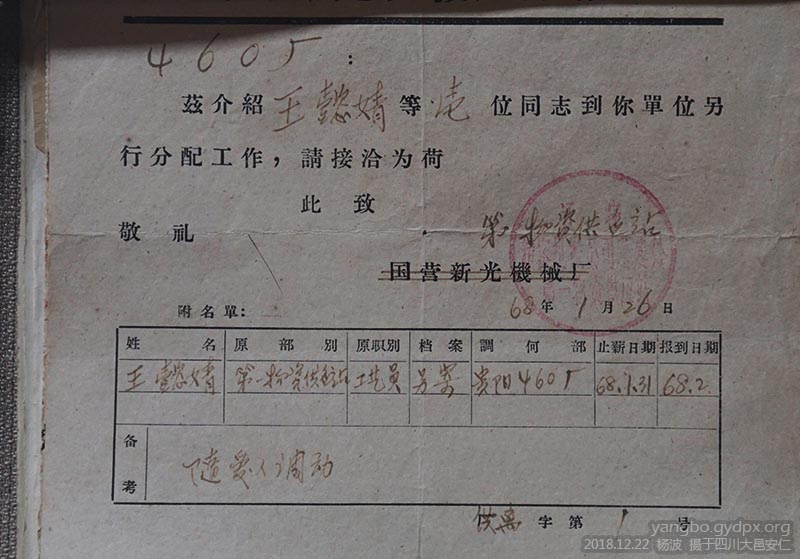 460厂：
茲介紹王懿婧等壱位同志到你單位另
行分配工作，請接洽为荷
此致
敬礼
第一物资供应站
国营新光機械厂
68年1月26日
附名單：
姓名 原部別 原职別 档案 調何部 止薪日期 报到日期
王懿婧 第一物资供应站 工艺員 另寄 贵阳460厂 68.1.31 68.2.
备考 随爱人调动
供离字第1号
yangbo.gydpx.org
2018.12.22 杨波 摄于四川大邑安仁